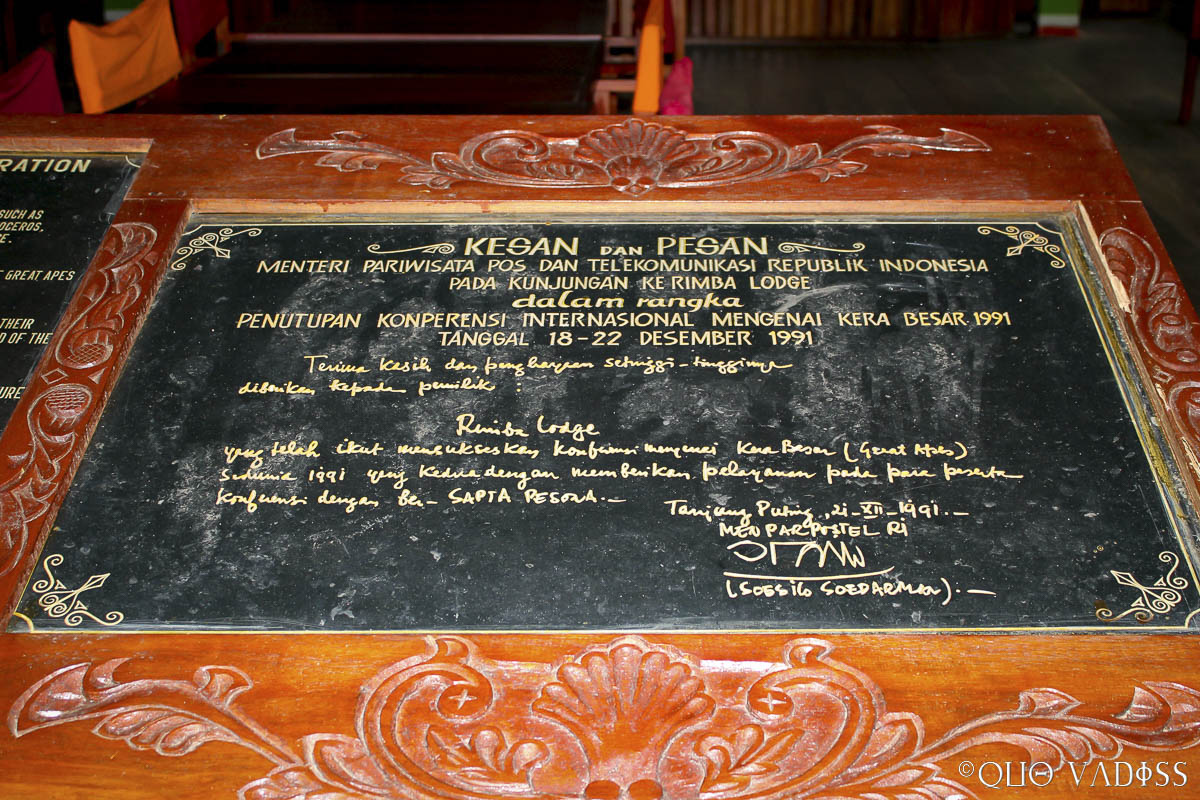 RATION
SUCH AS
OCEROS,
E.
GREAT APES
THEIR
D OF THE
URE
KESAN DAN PESAN
MENTERI PARIWISATA POS DAN TELEKOMUNIKASI REPUBLIK INDONESIA
PADA KUNJUNGAN KE RIMBA LODGE
dalam rangka
PENUTUPAN KONPERENSI INTERNASIONAL MENGENAI KERA BESAR 1991
TANGGAL 18-22 DESEMBER 1991
Terima kasih dan penghargaan setinggi-tingginya
diberikan kepada pemilik :
Rimba Lodge
yang telah ikut mensukseskan konferensi mengenai Kera Besar (Great Apes)
Sedunia 1991 yang kedua dengan memberikan pelayanan pada para peserta
konferensi dengan ber- SAPTA PESONA.-
Tanjung Puting, 21-XII-1991.-
MENPARPOSTEL RI
(SOESILO SOEDARMAN).-
©QUO VADISS